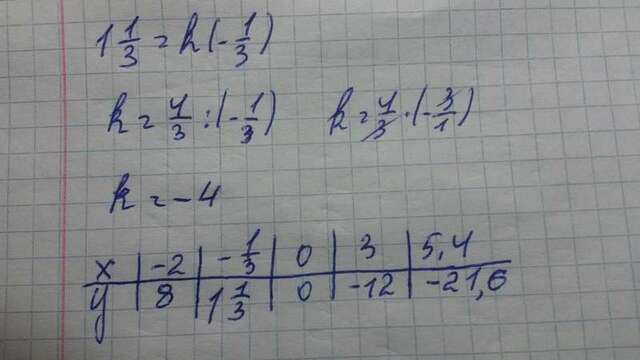 1 1/3 = k(-1/3)
k = 4/3 : (-1/3) k = 4/3 · (-3/1)
k = -4
x | -2 | -1/3 | 0 | 3 | 5,4
y | 8 | 1 1/3 | 0 | -12 | -21,6